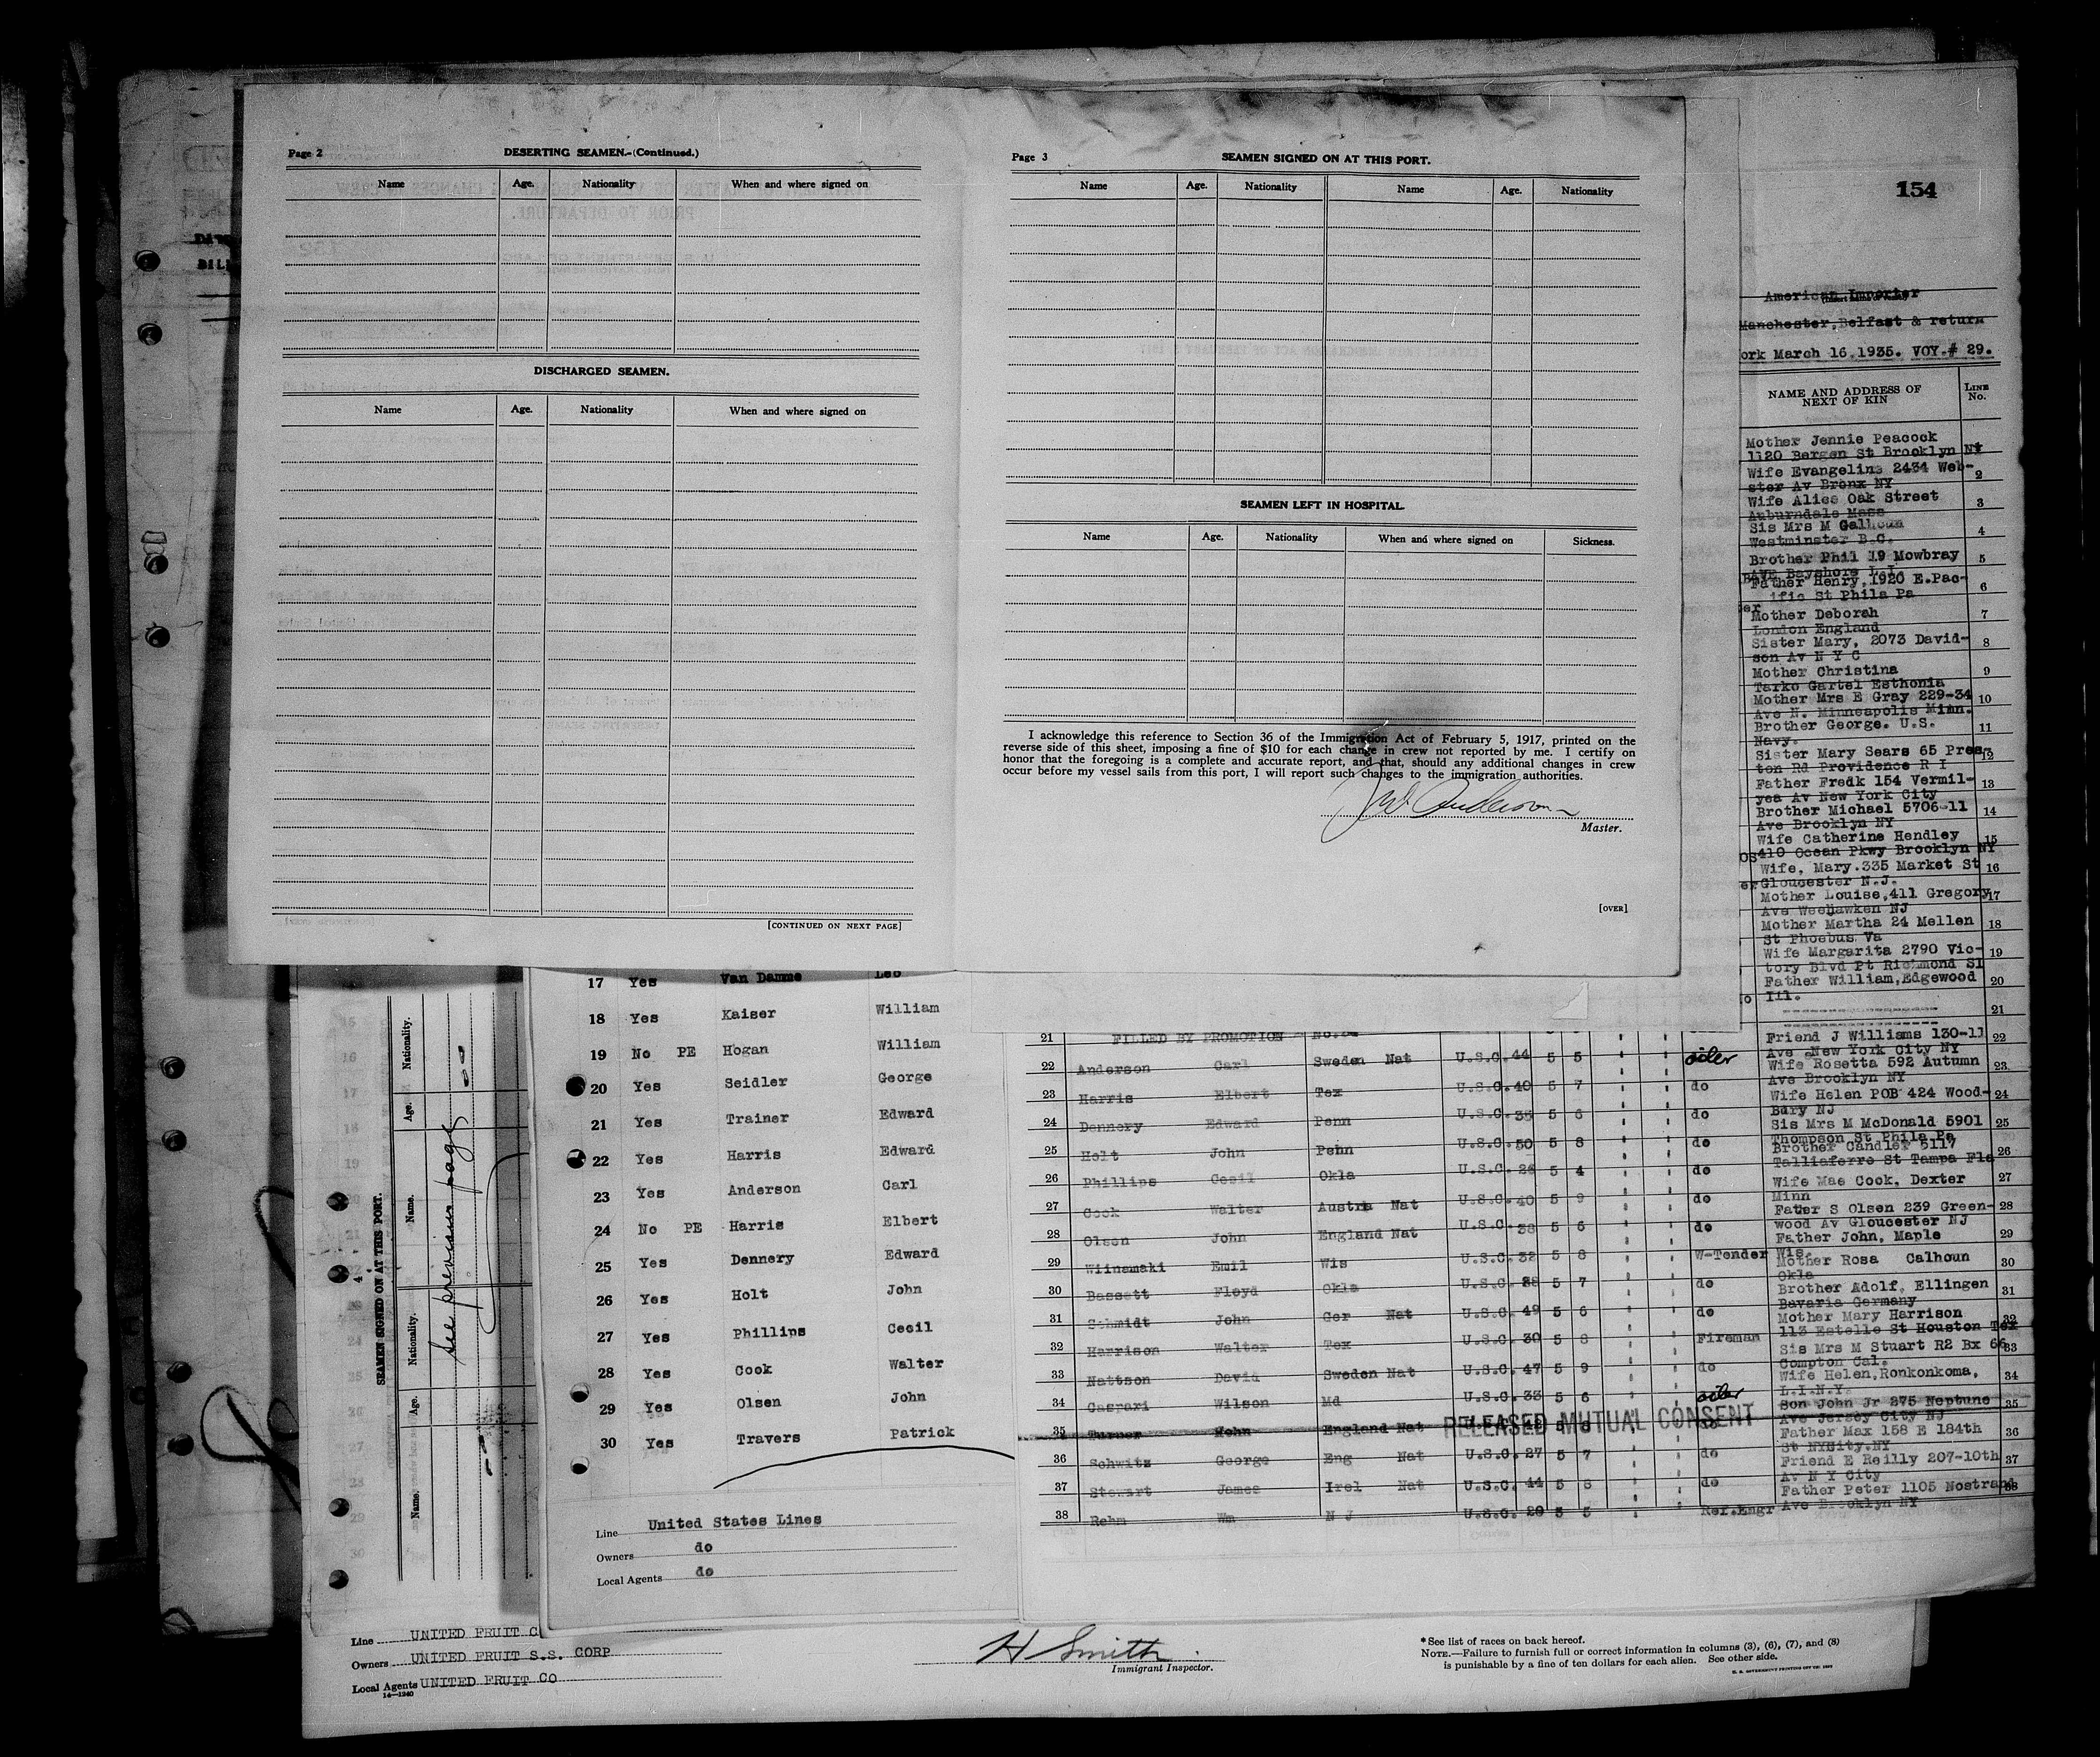 Page 2 DESERTING SEAMEN.-(Continued.)
Name Age. Nationality When and where signed on
DISCHARGED SEAMEN.
Name Age. Nationality When and where signed on
[CONTINUED ON NEXT PAGE]
Page 3 SEAMEN SIGNED ON AT THIS PORT.
Name Age. Nationality Name Age. Nationality
SEAMEN LEFT IN HOSPITAL.
Name Age. Nationality When and where signed on Sickness.
I acknowledge this reference to Section 36 of the Immigration Act of February 5, 1917, printed on the
reverse side of this sheet, imposing a fine of $10 for each change in crew not reported by me. I certify on
honor that the foregoing is a complete and accurate report, and that, should any additional changes in crew
occur before my vessel sails from this port, I will report such changes to the immigration authorities.
J W Anderson
Master.
[OVER]
154
American Importer
Manchester, Belfast & return
ork March 16.1935. VOY.# 29.
NAME AND ADDRESS OF
NEXT OF KIN
LINE
No.
Mother Jennie Peacock
1120 Bergen St Brooklyn NY
Wife Evangeline 2434 Web- 2
ster Av Bronx NY
Wife Alice Oak Street 3
Auburndale Mass
Sis Mrs M Calhoun 4
Westminster B.C.
Brother Phil 19 Mowbray 5
AVE Bayshore L.I.
Father Henry, 1920 E.Pac- 6
ific St Phila Pa
Mother Deborah 7
London England
Sister Mary, 2073 David- 8
son Av N Y C
Mother Christina 9
Tarko Gartel Esthonia
Mother Mrs E Gray 229-34 10
Ave N. Minneapolis Minn.
Brother George. U.S. 11
Navy.
Sister Mary Sears 65 Pres 12
ton Rd Providence R I
Father Fredk 154 Vermil- 13
yea Av New York City
Brother Michael 5706-11 14
Ave Brooklyn NY
Wife Catherine Hendley 15
410 Ocean Pkwy Brooklyn NY
Wife, Mary.335 Market St 16
Gloucester N.J.
Mother Louise,411 Gregory 17
Ave Weehawken NJ
Mother Martha 24 Mellen 18
St Phoebus Va
Wife Margarita 2790 Vic- 19
tory Blvd Pt Richmond SI
Father William,Edgewood 20
Ill.
21
Friend J Williams 130-11 22
Ave New York City NY
Wife Rosetta 592 Autumn 23
Ave Brooklyn NY
Wife Helen POB 424 Wood- 24
Bury NJ
Sis Mrs M McDonald 5901 25
Thompson St Phila Pa
Brother Candler 5117 26
Talliaferro St Tampa Fla
Wife Mae Cook, Dexter 27
Minn
Father S Olsen 239 Green- 28
wood Av Gloucester NJ
Father John, Maple 29
Wis.
Mother Rosa Calhoun 30
Okla
Brother Adolf, Ellingen 31
Bavaria Germany
Mother Mary Harrison 32
113 Estelle St Houston Tex
Sis Mrs M Stuart R2 Bx 66 33
Compton Cal.
Wife Helen,Ronkonkoma, 34
L.I.N.Y.
Son John Jr 275 Neptune 35
Ave Jersey City NJ
Father Max 158 E 184th 36
St NYCity.NY
Friend E Reilly 207-10th 37
Av N Y City
Father Peter 1105 Nostrand 38
Ave Brooklyn NY
17 Yes Van Damme Leo
18 Yes Kaiser William
19 No PE Hogan William
20 Yes Seidler George
21 Yes Trainer Edward
22 Yes Harris Edward
23 Yes Anderson Carl
24 No PE Harris Elbert
25 Yes Dennery Edward
26 Yes Holt John
27 Yes Phillips Cecil
28 Yes Cook Walter
29 Yes Olsen John
30 Yes Travers Patrick
Line United States Lines
Owners do
Local Agents do
21 FILLED BY PROMOTION
22 Anderson Carl Sweden Nat U.S.C. 44 5 5 oiler
23 Harris Elbert Tex U.S.C. 40 5 7 do
24 Dennery Edward Penn U.S.C. 35 5 6 do
25 Holt John Penn U.S.C. 50 5 8 do
26 Phillips Cecil Okla U.S.C. 26 5 4 do
27 Cook Walter Austria Nat U.S.C. 40 5 9 do
28 Olsen John England Nat U.S.C. 38 5 6 do
29 Wiinamaki Emil Wis U.S.C. 32 5 8 W-Tender
30 Bassett Floyd Okla U.S.C. 28 5 7 do
31 Schmidt John Ger Nat U.S.C. 49 5 6 do
32 Harrison Walter Tex U.S.C. 30 5 8 Fireman
33 Nattson David Sweden Nat U.S.C. 47 5 9 do
34 Casrari Wilson Md U.S.C. 33 5 6 oiler
35 Turner John England Nat RELEASED MUTUAL CONSENT
36 Schwitz George Eng Nat U.S.C. 27 5 7 do
37 Stewart James Irel Nat U.S.C. 44 5 8 do
38 Rehm Wm N J U.S.C. 20 5 5 Ref.Engr
SEAMEN SIGNED ON AT THIS PORT.
Name. Age. Nationality. Name. Age. Nationality.
See previous page
Line UNITED FRUIT C
Owners UNITED FRUIT S.S. CORP
Local Agents UNITED FRUIT CO
14-1240
H Smith
Immigrant Inspector.
* See list of races on back hereof.
NOTE.—Failure to furnish full or correct information in columns (3), (6), (7), and (8)
is punishable by a fine of ten dollars for each alien. See other side.